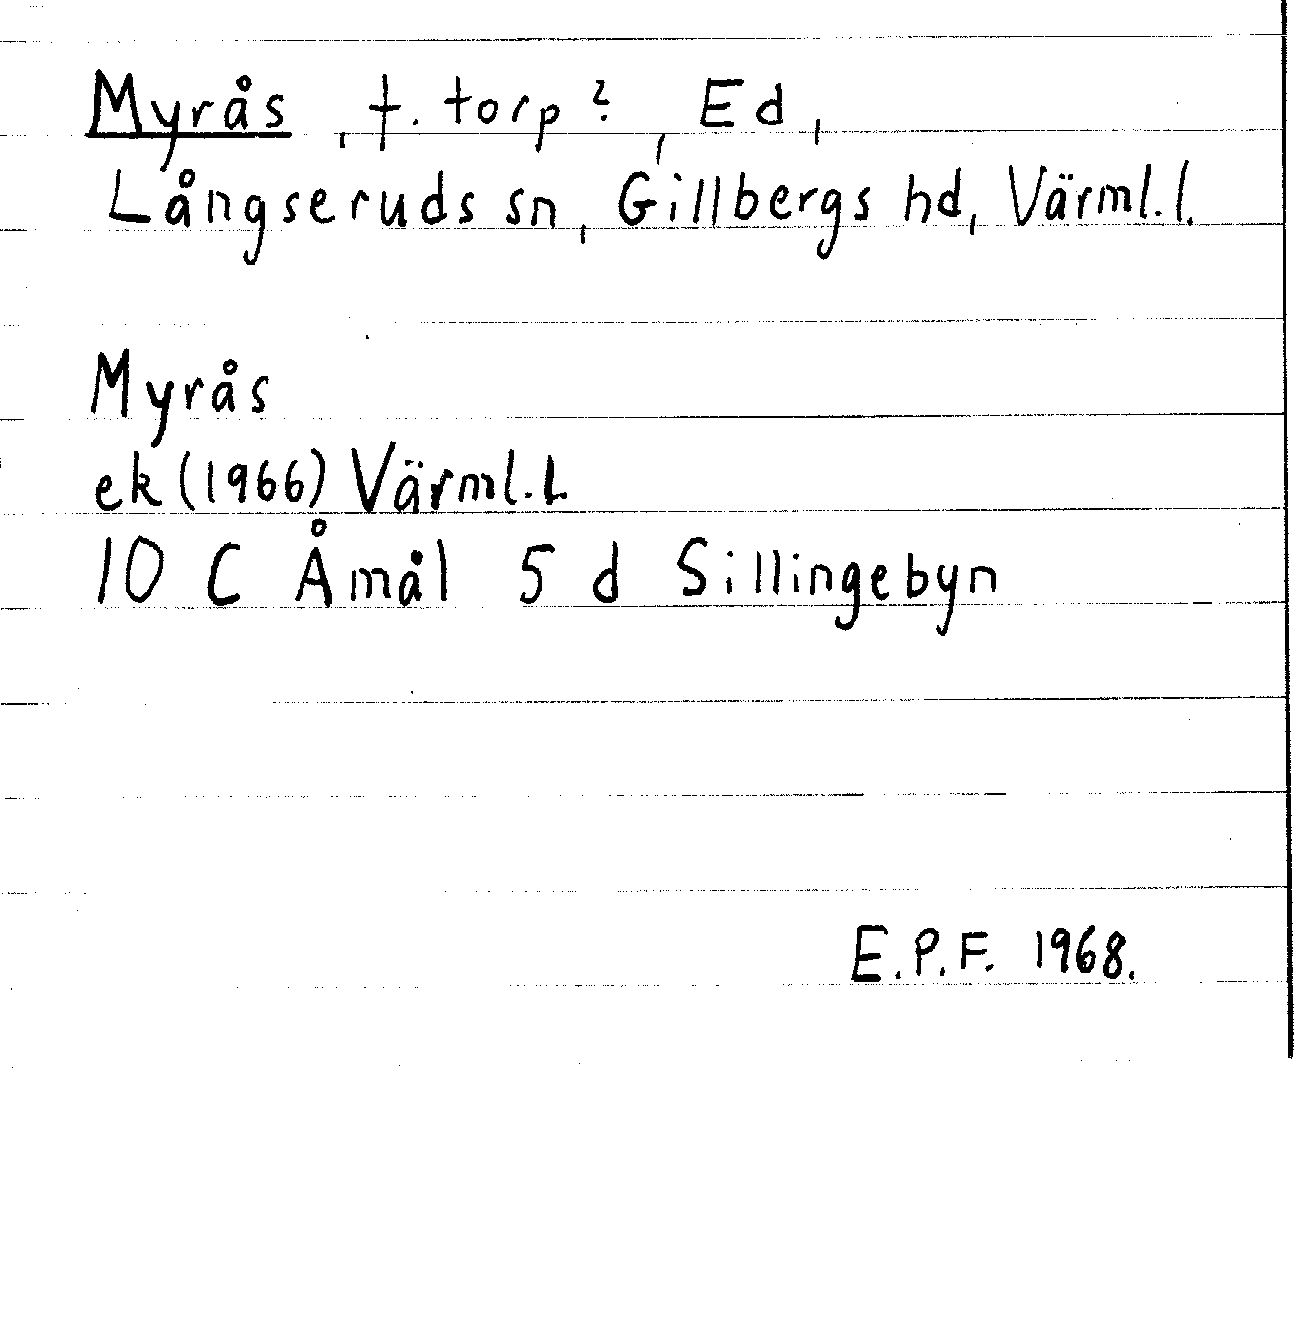 Myrås, f. torp?, Ed,
Långseruds sn, Gillbergs hd, Värml. l.
Myrås
ek (1966) Värml. L
10 C Åmål 5 d Sillingebyn
E.P.F. 1968.